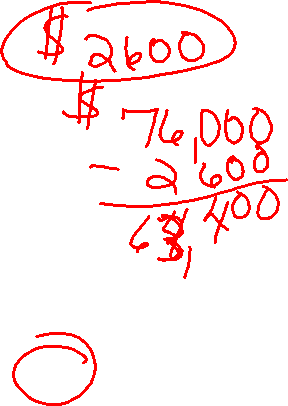 $ 2600
$ 76,000
- 2600
63,400